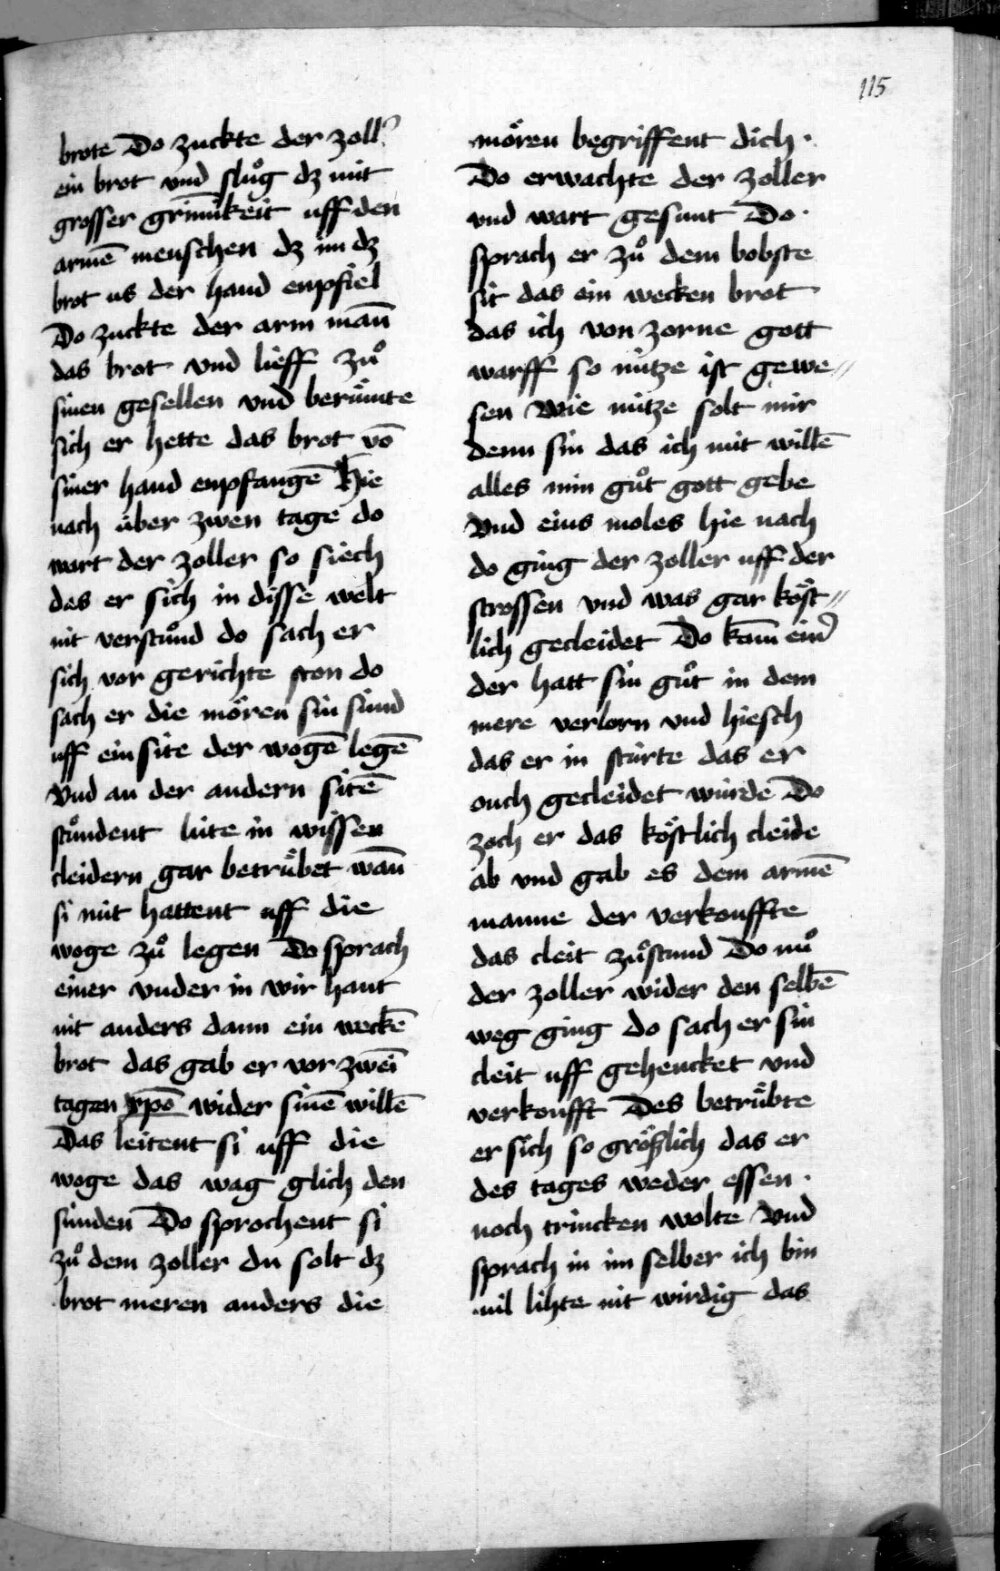 115
brote Do zuckte der zoll᾿
ein brot vnd sluͦg dz mit
grosser grim̄ikeit uff den
armē menschen dz im dz
brot us der hand enpfiel
Do zuckte der arm man̄
das brot vnd lieff zuͦ
sinen gesellen vnd beruͤmte
sich er hette das brot vō
siner hand enpfangē Hie
nach über zwen tage do
wart der zoller so siech
das er sich in disse welt
nit verstuͦnd do sach er
sich vor gerichte ston do
sach er die moͤren sin sünd
uff ein site der wogē legē
Vnd an der andern sitē
stuͦndent lüte in wissen
cleidern gar betruͤbet wan̄
si nüt hattent uff die
woge zuͦ legen Do sprach
einer vnder in wir hant
nit anders dann ein weckē
brot das gab er vor zwei
tagen xpō wider sinē willē
Das leitent si uff die
woge das wag glich den
sünden Do sprochent si
zuͦ dem zoller du solt dz
brot meren anders die
moͤren begriffent dich ·
Do erwachte der zoller
vnd wart gesunt Do ·
sprach er zuͦ dem bobste
sit das ein wecken brot
das ich von zorne gott
warff so nütze ist gewe//
sen Wie nütze solt mir
denn sin das ich mit willē
alles min guͦt gott gebe
Vnd eins moles hie nach
do ging der zoller uff der
strossen vnd was gar koͤst//
lich gecleidet Do kam̄ ein᾿
der hatt sin guͦt in dem
mere verlorn vnd hiesch
das er in stürte das er
ouch gecleidet würde Do
zoch er das koͤstlich cleide
ab vnd gab es dem armē
manne der verkouffte
das cleit zuͦstund Do nuͦ
der zoller wider den selbē
weg ging do sach er sin
cleit uff gehencket vnd
verkoufft Des betruͤbte
er sich so groͤßlich das er
des tages weder essen ·
noch trincken wolte Vnd
sprach in im selber ich bin
vil lihte nit wirdig das